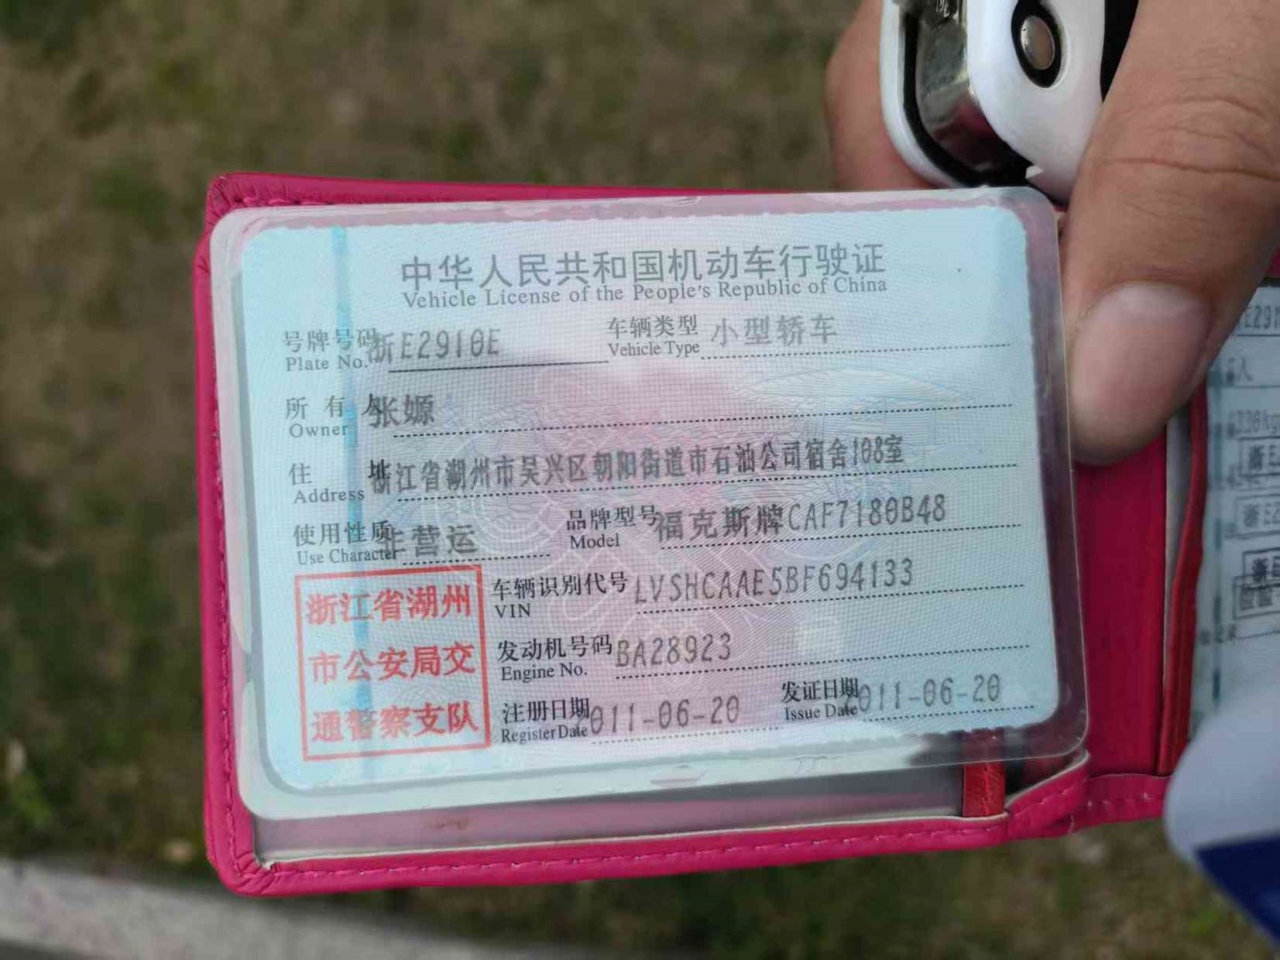 中华人民共和国机动车行驶证
Vehicle License of the People's Republic of China
号牌号码 浙E2910E 车辆类型 小型轿车
Plate No. Vehicle Type
所有人 张嫄
Owner
住址 浙江省湖州市吴兴区朝阳街道市石油公司宿舍108室
Address
使用性质 非营运 品牌型号 福克斯牌CAF7180B48
Use Character Model
浙江省湖州
市公安局交
通警察支队
车辆识别代号 LVSHCAAE5BF694133
VIN
发动机号码 BA28923
Engine No.
注册日期 2011-06-20 发证日期 2011-06-20
Register Date Issue Date